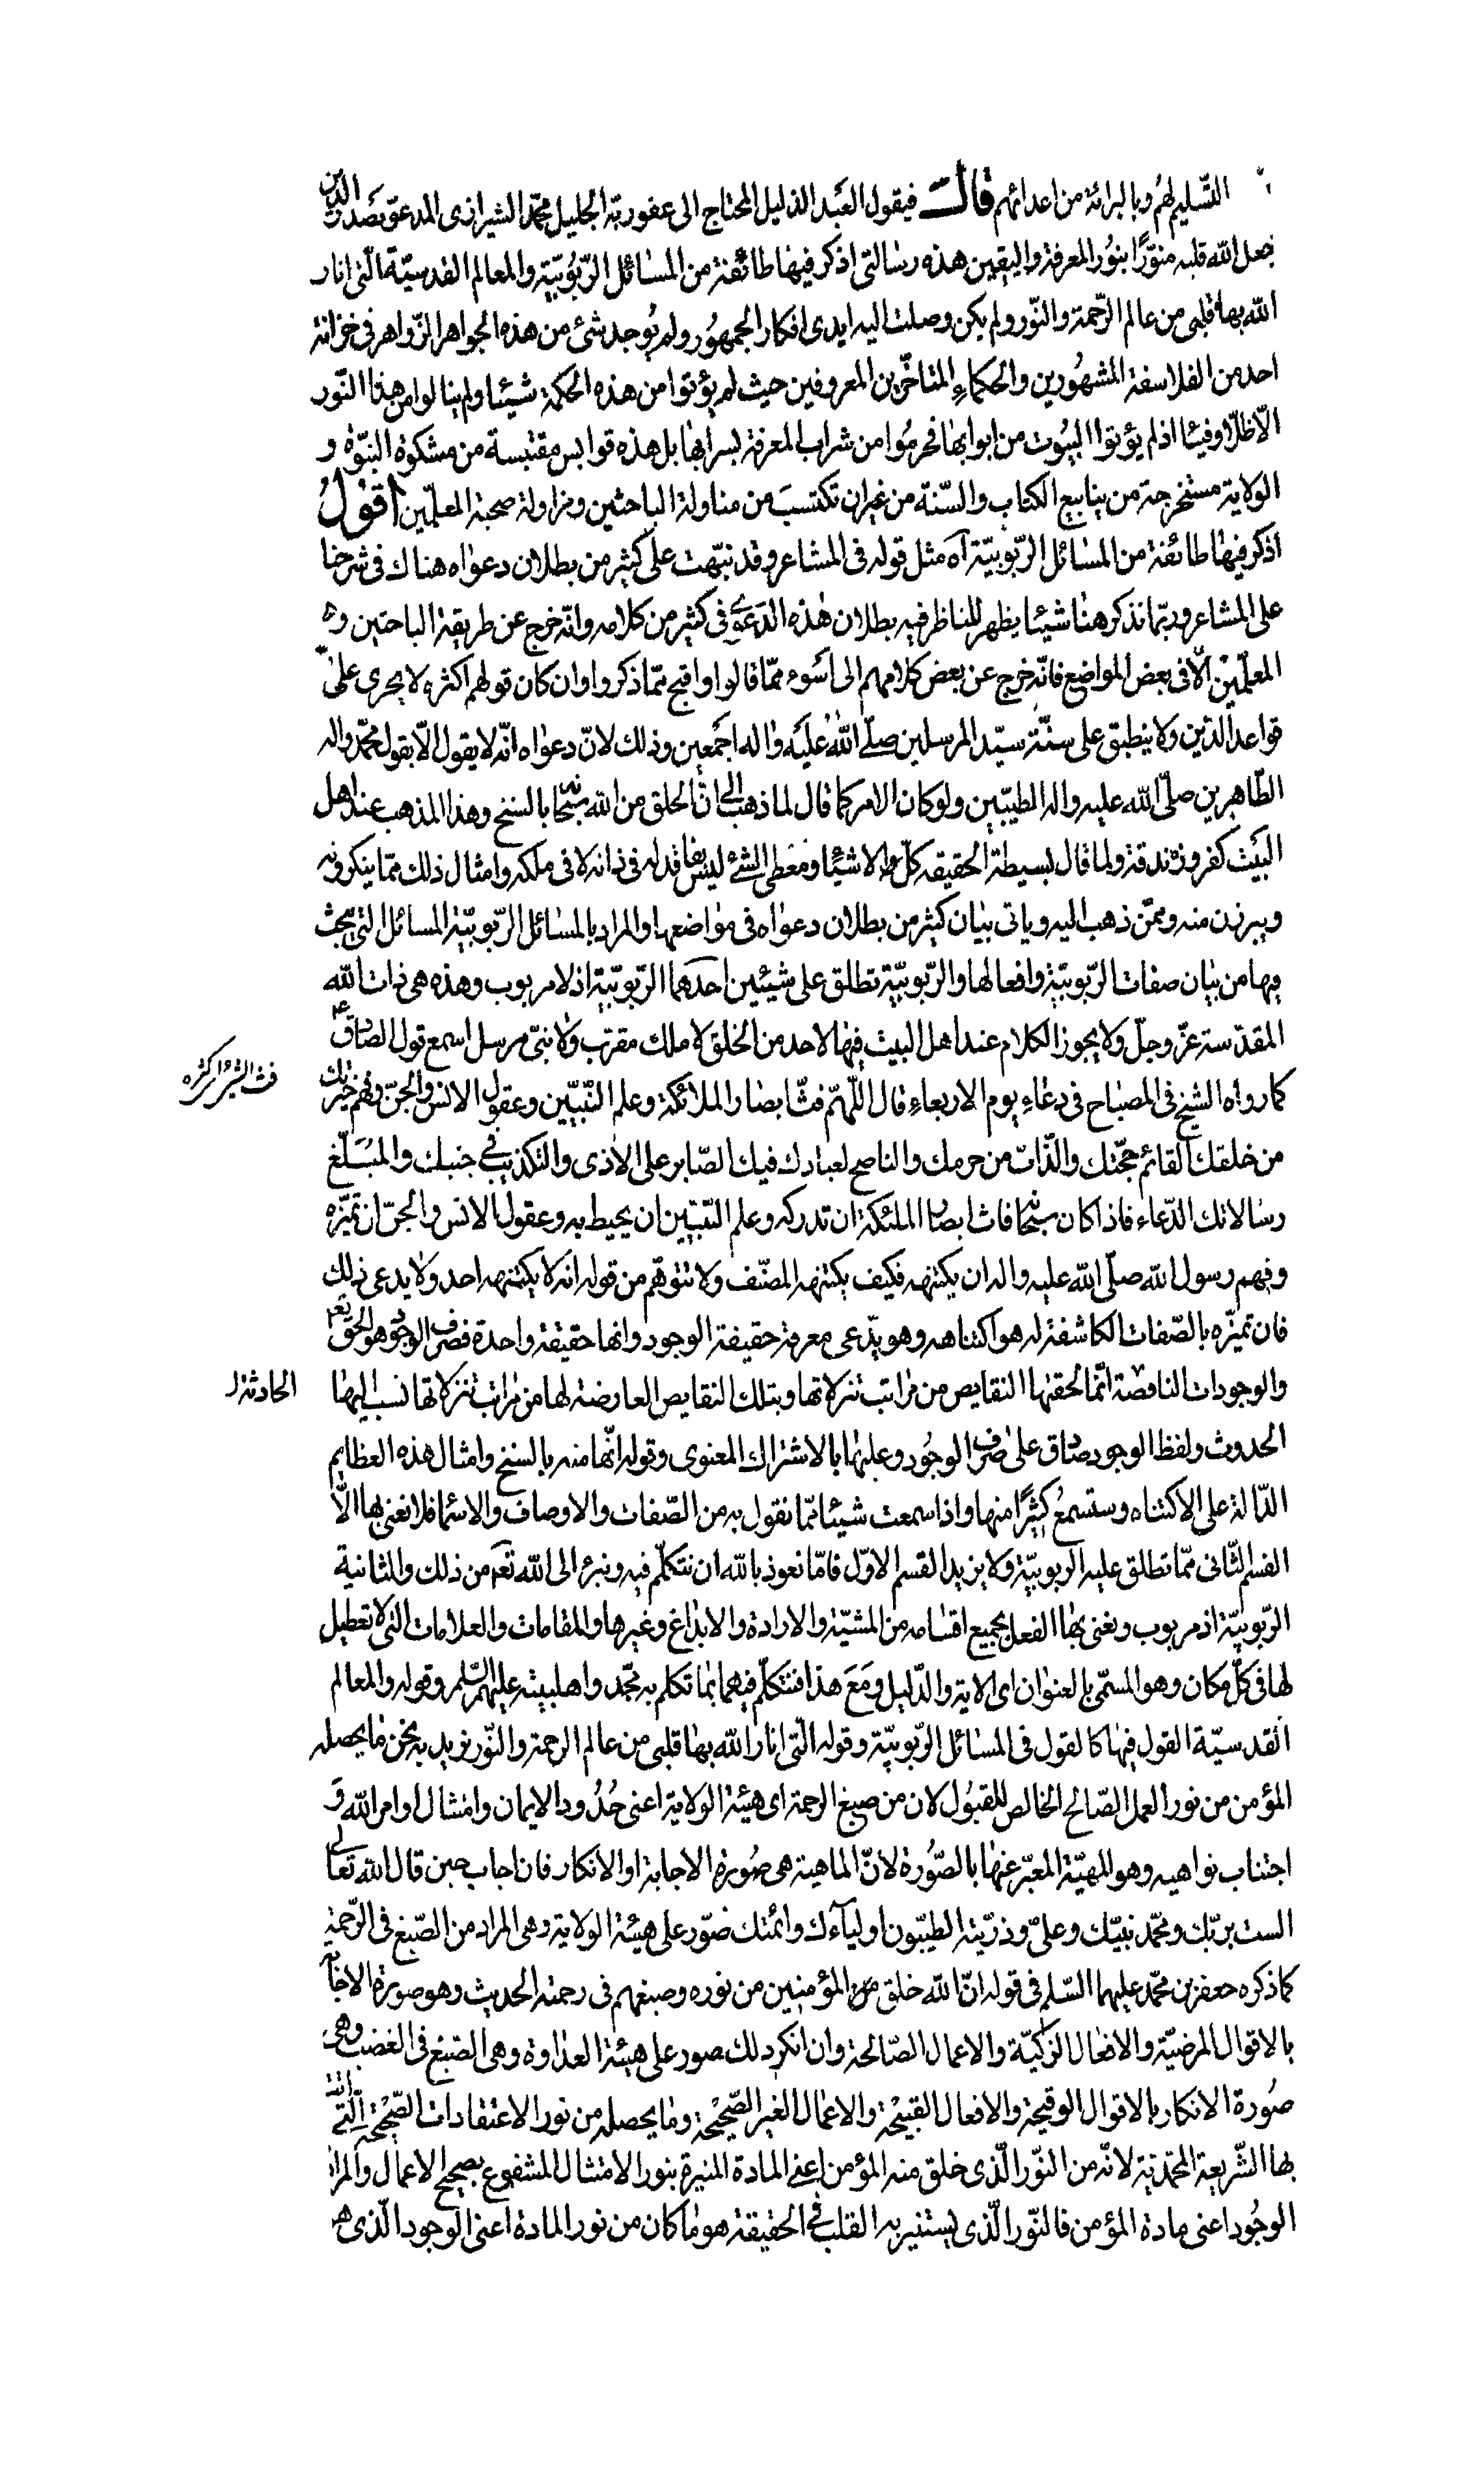 التسليم لهم وبالبرائة من اعدائهم قال فيقول العبد الذليل المحتاج الى عفو ربه الجليل محمد الشيرازى المدعو بصدر الدين
جعل الله قلبه منوّرًا بنور المعرفة واليقين هذه رسالتى اذكر فيها طائفة من المسائل الرّبوبيّة والمعالم القدسيّة الّتى انار
الله بها قلبى من عالم الرّحمة والنّور ولم يكن وصلت اليه ايدى افكار الجمهور ولم يوجد شئ من هذه الجواهر الزّواهر فى خزانة
احد من الفلاسفة المشهورين والحكماء المتاخّرين المعروفين حيث لم يؤتوا من هذه الحكمة شيئا ولم ينالوا من هذا النّور
الّا ظلّا وفيئا اذ لم يؤتوا البيوت من ابوابها فحرموا من شراب المعرفة بسرابها بل هذه قوابس مقتبسة من مشكوة النبوّة و
الولاية مستخرجة من ينابيع الكتاب والسّنة من غير ان تكتسب من مناولة الباحثين ومزاولة صحبة المعلّمين اقول
اذكر فيها طائفة من المسائل الرّبوبيّة آه مثل قوله فى المشاعر وقد نبّهت على كثير من بطلان دعواه هناك فى شرحنا
على المشاعر وربّما نذكر هنا شيئا يظهر للناظر فيه بطلان هذه الدّعوى فى كثير من كلامه وانّه خرج عن طريقة الباحثين و
المعلّمين الّا فى بعض المواضع فانّه خرج عن بعض كلامهم الى اسوء ممّا قالوا واقبح ممّا ذكروا وان كان قولهم اكثره لا يجرى على
قواعد الدّين ولا ينطبق على سنّة سيّد المرسلين صلّى الله عليه واله اجمعين وذلك لانّ دعواه انّه لا يقول الّا بقول محمّد واله
الطّاهرين صلّى الله عليه واله الطيّبين ولو كان الامر كما قال لما ذهب الى انّ الخلق من الله سبحانه بالسنخ وهذا المذهب عند اهل
البيت كفر وزندقة ولما قال بسيطة الحقيقه كلّ الاشيا ومعطى الشئ ليس فاقد له فى ذاته لا فى ملكه وامثال ذلك ممّا ينكرونه
ويبرؤن منه وممّن ذهب اليه وياتى بيان كثير من بطلان دعواه فى مواضعها والمراد بالمسائل الرّبوبيّة المسائل التى يبحث
فيها من بيان صفات الرّبوبيّة وافعالها والرّبوبيّة تطلق على شيئين احدهما الرّبوبيّة اذ لا مربوب وهذه هى ذات الله
المقدّسة عزّ وجلّ ولا يجوز الكلام عند اهل البيت فيها لاحد من الخلق لا ملك مقرّب ولا نبىّ مرسل اسمع قول الصادق ع
كما رواه الشيخ فى المصباح فى دعاء يوم الاربعاء قال اللّهمّ فتّ ابصار الملائكة وعلم النّبيّين وعقول الانس والجنّ وفهم خيرتك
من خلقك القائم بحجّتك والذّاب من حرمك والناصح لعبادك فيك الصّابر على الاذى والتكذيب فى جنبك والمبلّغ
رسالاتك الدّعاء فاذا كان سبحانه فات ابصار الملئكة ان تدركه وعلم النّبيّين ان يحيط به وعقول الانس والجنّ ان تميّزه
وفهم رسول الله صلّى الله عليه واله ان يكتنهه فكيف يكتنهه المصنّف ولا تتوهّم من قوله انه لا يكتنهه احد ولا يدعى ذلك
فان تميّزه بالصّفات الكاشفة له هو اكتناهه وهو يدّعى معرفة حقيقة الوجود وانها حقيقة واحدة فصرف الوجود هو الحقّ تعالى
والوجودات الناقصة انّما لحقتها النقايص من مراتب تنزلاتها وبتلك النقايص العارضة لها من مراتب تنزلاتها نسب اليها
الحدوث ولفظ الوجود صادق على صرف الوجود وعليها بالاشتراك المعنوى وقوله انّها منه بالسنخ وامثال هذه العظايم
الدّالة على الاكتناه وستسمع كثيرًا منها واذا سمعت شيئا ممّا نقول به من الصّفات والاوصاف والاسما فلا نعنى بها الّا
القسم الثّانى ممّا تطلق عليه الربوبيّة ولا يزيد القسم الاوّل فامّا نعوذ بالله ان نتكلّم فيه ونبرء الى الله تع من ذلك والثانية
الرّبوبيّة اذ مربوب ونعنى بها الفعل بجميع اقسامه من المشيّة والارادة والابداع وغيرها والمقامات والعلامات التى لا تعطيل
لها فى كلّ مكان وهو المسمّى بالعنوان اى الاية والدّليل ومع هذا فنتكلّم فيهما بما تكلم به محمّد واهلبيته عليهم السّلم وقوله والمعالم
القدسيّة القول فيها كالقول فى المسائل الرّبوبيّة وقوله الّتى انار الله بها قلبى من عالم الرحمة والنّور نريد به نحن ما يحصله
المؤمن من نور العمل الصّالح الخالص للقبول لان من صبغ الرحمة اى هيئة الولاية اعنى حدود الايمان وامتثال اوامر الله و
اجتناب نواهيه وهو الهيّة المعبّر عنها بالصّورة لانّ الماهية هى صورة الاجابة او الانكار فان اجاب حين قال الله تعالى
الست بربّك ومحمّد نبيّك وعلىّ وذرّيته الطيّبون اولياءك وائمّتك صوّر على هيئة الولاية وهى المراد من الصّبغ فى الرّحمة
كما ذكره جعفر بن محمّد عليهما السّلم فى قوله انّ الله خلق المؤمنين من نوره وصبغهم فى رحمته الحديث وهو صورة الاجابة
بالاقوال المرضيّة والافعال الزّكيّة والاعمال الصّالحة وان انكر ذلك صور على هيئة العداوة وهى الصّبغ فى الغضب وهى
صورة الانكار بالاقوال الوقيحة والافعال القبيحة والاعمال الغير الصّحيحة وما يحصله من نور الاعتقادات الصّحيحة الّتى
بها الشّريعة المحمّديّة لانّه من النّور الّذى خلق منه المؤمن اعنى المادة المنيرة بنور الامتثال المشفوع بصحيح الاعمال والمراد
الوجود اعنى مادة المؤمن فالنّور الّذى يستنير به القلب فى الحقيقة هو ما كان من نور المادة اعنى الوجود الّذى هو
الحادثة